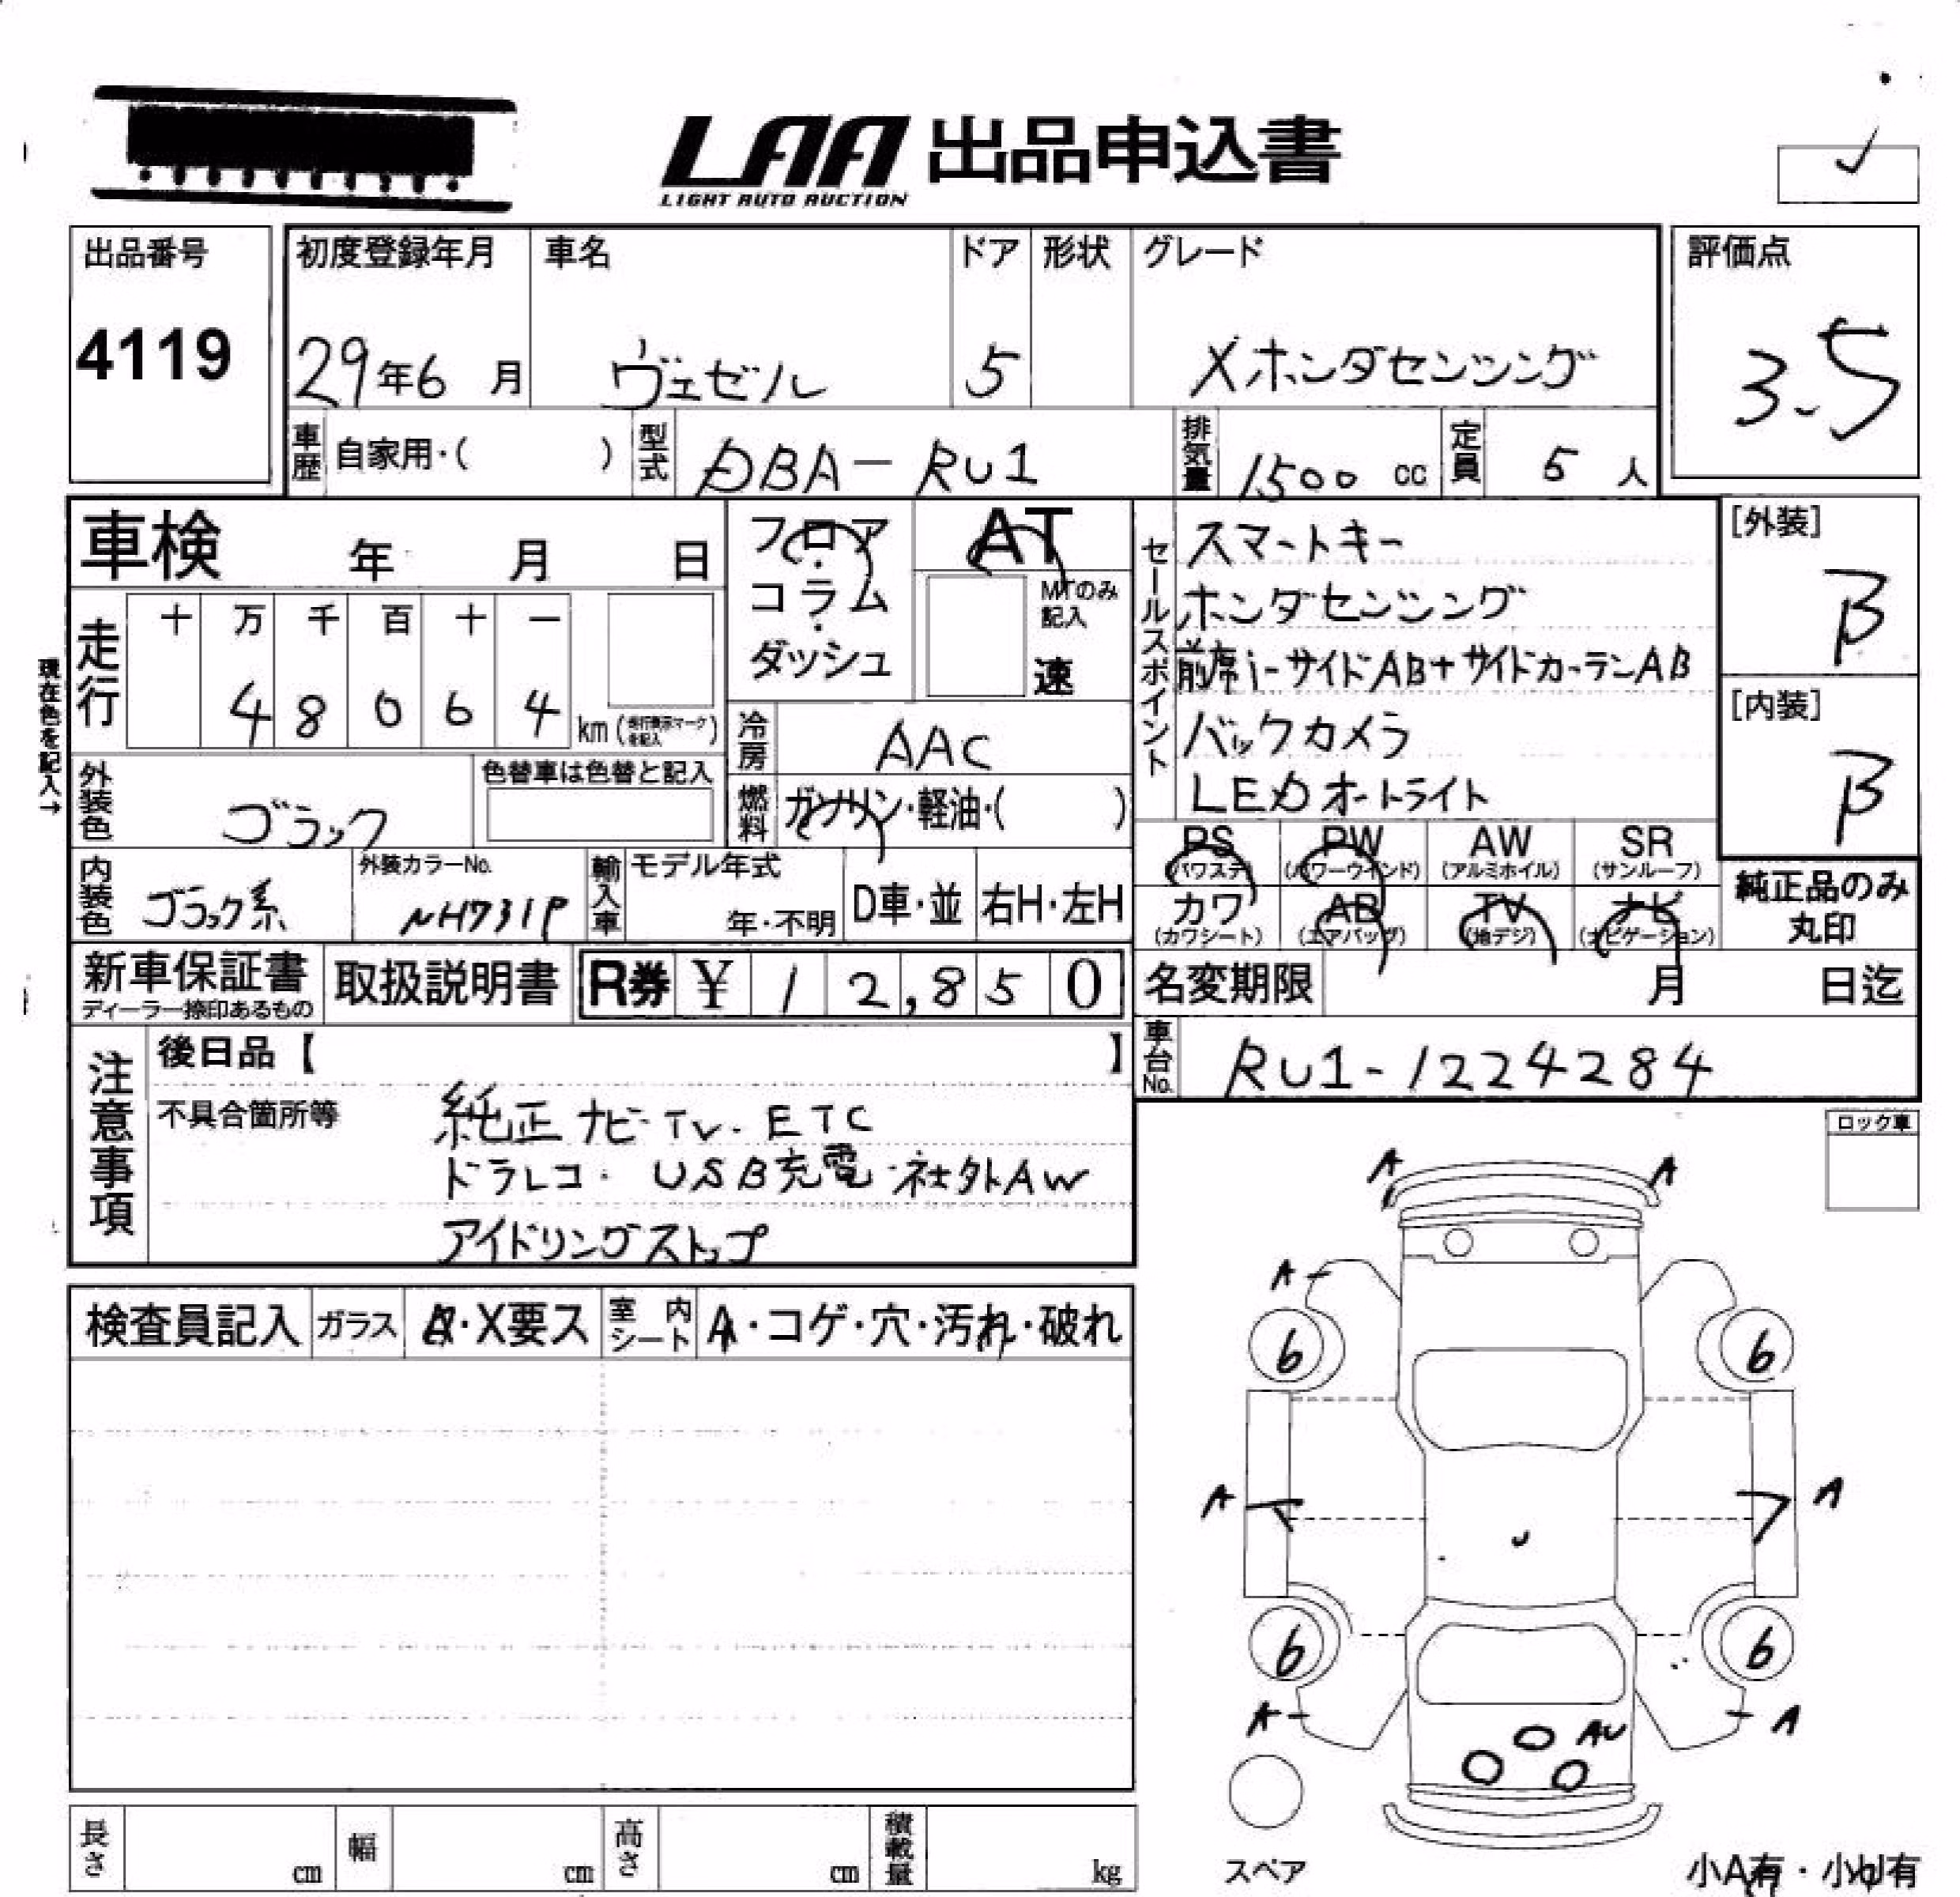 LAA 出品申込書
LIGHT AUTO AUCTION
出品番号
4119
初度登録年月
29年6月
車名
ヴェゼル
ドア
5
形状
グレード
Xホンダセンシング
評価点
3.5
車歴 自家用・( )
型式 DBA-RU1
排気量 1500 cc
定員 5 人
車検 年 月 日
フロア・コラム・ダッシュ
AT
MTのみ記入
速
セールスポイント
スマートキー
ホンダセンシング
前席i-サイドAB+サイドカーテンAB
バックカメラ
LEDオートライト
[外装]
B
[内装]
B
現在色を記入→
走行
十 万 千 百 十 一
4 8 0 6 4 km
冷房 AAC
外装色 ブラック
色替車は色替と記入
燃料 ガソリン・軽油・( )
PS (パワステ)
PW (パワーウインド)
AW (アルミホイル)
SR (サンルーフ)
内装色 ブラック系
外装カラーNo.
NH731P
輸入車 モデル年式
年・不明
D車・並
右H・左H
カワ (カワシート)
AB (エアバッグ)
TV (地デジ)
ナビ (ナビゲーション)
純正品のみ丸印
新車保証書
ディーラー捺印あるもの
取扱説明書
R券 ¥ 12,850
名変期限 月 日迄
車台No. RU1-1224284
注意事項
後日品【 】
不具合箇所等
純正ナビ・TV・ETC
ドラレコ・USB充電・社外AW
アイドリングストップ
ロック車
検査員記入
ガラス A・X要ス
室内シート A・コゲ・穴・汚れ・破れ
A A
A
6 6
A A
6 6
A A
AU
スペア
小A有・小U有
長さ cm
幅 cm
高さ cm
積載量 kg